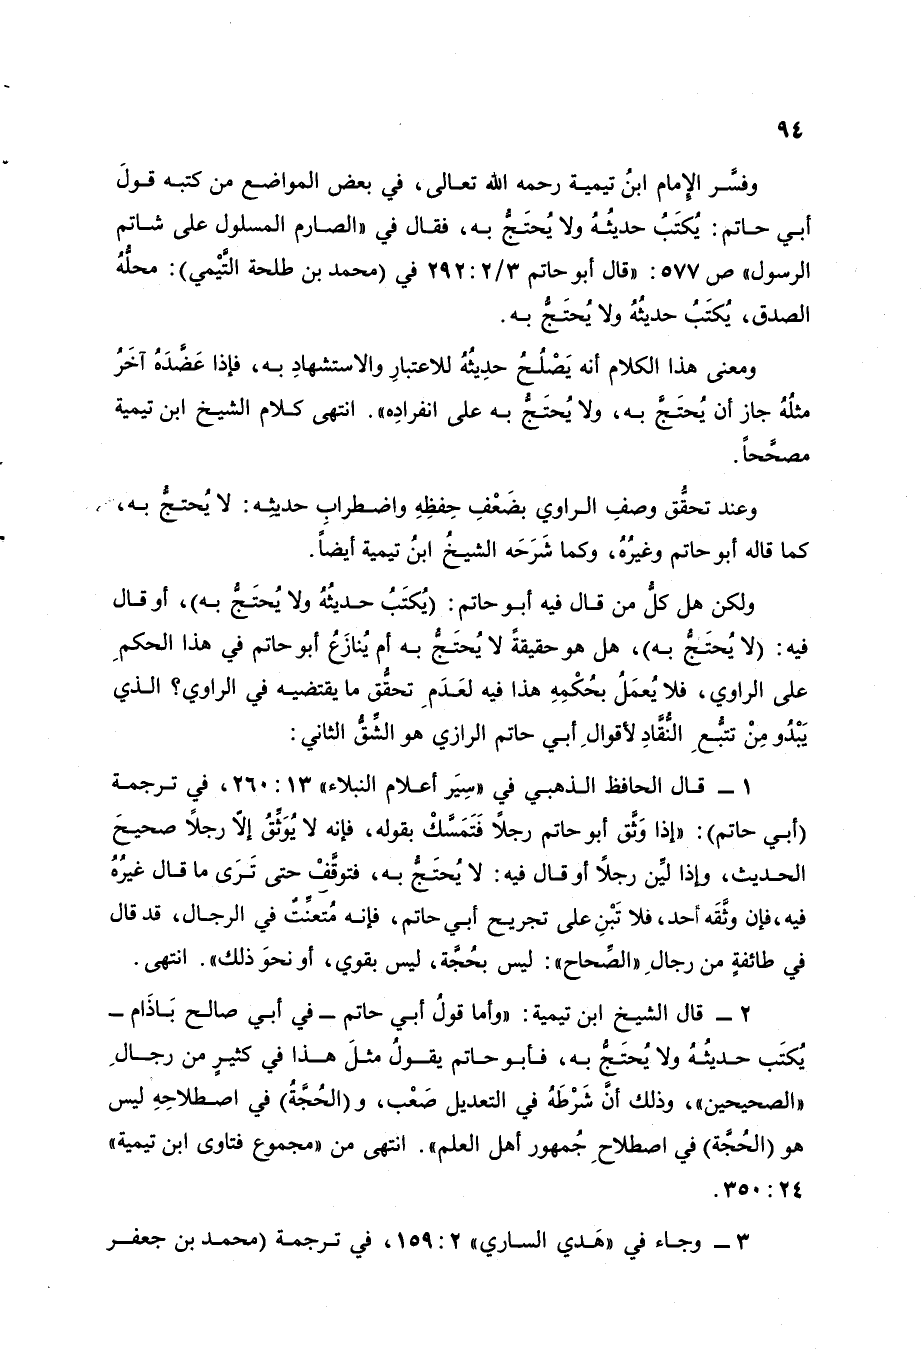 ٩٤
وفسَّر الإمام ابنُ تيمية رحمه الله تعالى، في بعض المواضع من كتبه قولَ
أبي حاتم: يُكتَبُ حديثُهُ ولا يُحتَجُّ به، فقال في «الصارم المسلول على شاتم
الرسول» ص ٥٧٧: «قال أبو حاتم ٢٩٢:٢/٣ في (محمد بن طلحة التَّيْمي): محلُّهُ
الصدق، يُكتَبُ حديثُهُ ولا يُحتَجُّ به.
ومعنى هذا الكلام أنه يَصْلُحُ حدِيثُهُ للاعتبارِ والاستشهادِ به، فإذا عَضَّدَهُ آخَرُ
مثلُهُ جاز أن يُحتَجَّ به، ولا يُحتَجُّ به على انفراده». انتهى كلام الشيخ ابن تيمية
مصحَّحاً.
وعند تحقُّقِ وصفِ الراوي بضَعْفِ حِفظِهِ واضطرابِ حديثِه: لا يُحتجُّ به،
كما قاله أبو حاتم وغيرُهُ، وكما شَرَحَه الشيخُ ابنُ تيمية أيضاً.
ولكن هل كلُّ من قال فيه أبو حاتم: (يُكتَبُ حديثُهُ ولا يُحتَجُّ به)، أو قال
فيه: (لا يُحتَجُّ به)، هل هو حقيقةً لا يُحتَجُّ به أم يُنازَعُ أبو حاتم في هذا الحكمِ
على الراوي، فلا يُعمَلُ بحُكْمِهِ هذا فيه لعَدَمِ تحقُّقِ ما يقتضيه في الراوي؟ الذي
يَبْدُو مِنْ تتبُّعِ النُّقَّادِ لأقوالِ أبي حاتم الرازي هو الشِّقُّ الثاني:
١ ــ قال الحافظ الذهبي في «سِيَر أعلام النبلاء» ١٣: ٢٦٠، في ترجمة
(أبي حاتم): «إذا وَثَّق أبو حاتم رجلاً فَتَمَسَّكْ بقوله، فإنه لا يُوَثِّقُ إلَّا رجلاً صحيحَ
الحديث، وإذا ليَّن رجلاً أو قال فيه: لا يُحتَجُّ به، فتوقَّفْ حتى تَرَى ما قال غيرُهُ
فيه، فإن وثَّقه أحد، فلا تَبْنِ على تجريح أبي حاتم، فإنه مُتعنِّتٌ في الرجال، قد قال
في طائفةٍ من رجالِ «الصِّحاح»: ليس بحُجَّة، ليس بقوي، أو نحوَ ذلك». انتهى.
٢ ــ قال الشيخ ابن تيمية: «وأما قولُ أبي حاتم ــ في أبي صالح بَاذَام ــ
يُكتَب حديثُهُ ولا يُحتَجُّ به، فأبو حاتم يقولُ مثلَ هذا في كثيرٍ من رجالِ
«الصحيحين»، وذلك أنَّ شَرْطَهُ في التعديل صَعْب، و(الحُجَّةُ) في اصطلاحِهِ ليس
هو (الحُجَّة) في اصطلاحِ جُمهور أهل العلم». انتهى من «مجموع فتاوى ابن تيمية»
٢٤: ٣٥٠.
٣ ــ وجاء في «هَدي الساري» ٢: ١٥٩، في ترجمة (محمد بن جعفر